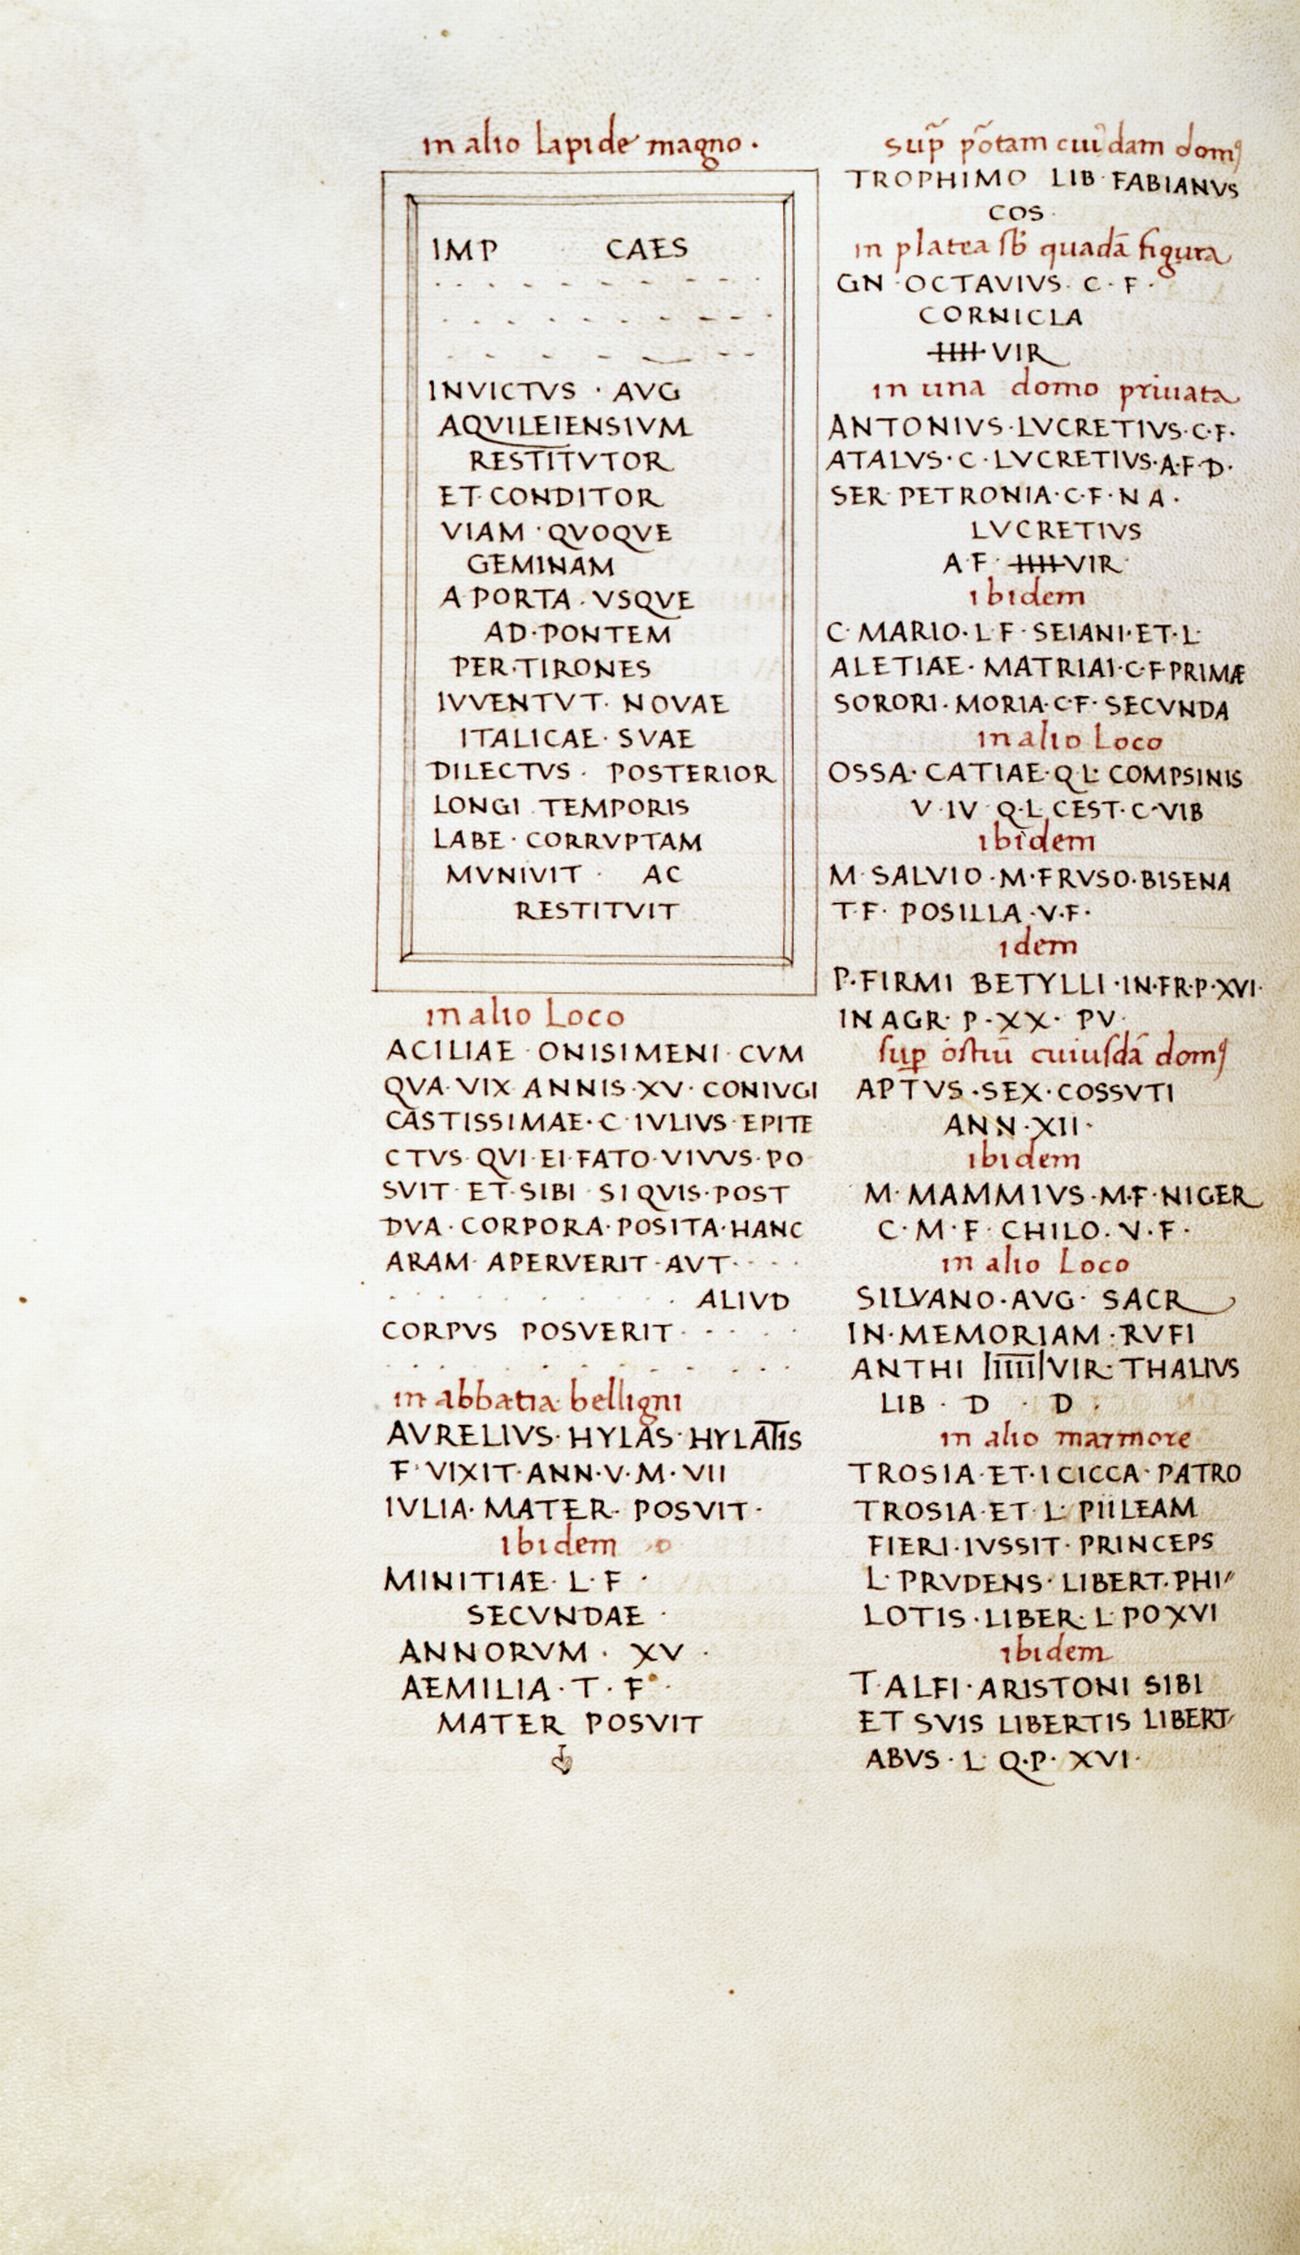 in alio lapide magno ·
IMP CAES
INVICTVS · AVG
AQVILEIENSIVM
RESTITVTOR
ET CONDITOR
VIAM · QVOQVE
GEMINAM
A PORTA · VSQVE
AD · PONTEM
PER · TIRONES
IVVENTVT · NOVAE
ITALICAE · SVAE
DILECTVS · POSTERIOR
LONGI TEMPORIS
LABE · CORRVPTAM
MVNIVIT · AC
RESTITVIT
in alio Loco
ACILIAE · ONISIMENI · CVM
QVA · VIX · ANNIS · XV · CONIVGI
CASTISSIMAE · C · IVLIVS · EPITE
CTVS · QVI · EI · FATO · VIVVS · PO
SVIT · ET · SIBI · SI QVIS · POST
DVA · CORPORA · POSITA · HANC
ARAM · APERVERIT · AVT · · · ·
· · · · · · · · ALIVD
CORPVS POSVERIT · · · · ·
in abbatia belligni
AVRELIVS · HYLAS · HYLATIS
F · VIXIT · ANN · V · M · VII
IVLIA · MATER · POSVIT ·
ibidem
MINITIAE · L · F ·
SECVNDAE ·
ANNORVM · XV ·
AEMILIA · T · F ·
MATER POSVIT
sup̄ p̄otam cuidam domꝰ
TROPHIMO LIB · FABIANVS
COS ·
in platea sb̄ quadā figura
GN · OCTAVIVS · C · F ·
CORNICLA
IIII VIR
in una domo priuata
ANTONIVS · LVCRETIVS · C · F ·
ATALVS · C · LVCRETIVS · A · F · D ·
SER PETRONIA · C · F · N A ·
LVCRETIVS
A · F · IIII VIR ·
ibidem
C · MARIO · L · F · SEIANI · ET · L ·
ALETIAE · MATRIAI · C · F · PRIMÆ
SORORI · MORIA · C · F · SECVNDA
in alio Loco
OSSA · CATIAE · Q · L · COMPSINIS
V · IV · Q · L CEST · C · VIB
ibidem
M · SALVIO · M · FRVSO · BISENA
T · F · POSILLA · V · F ·
idem
P · FIRMI BETYLLI · IN · FR · P · XVI ·
IN AGR · P · XX · PV ·
sup ostiū cuiusdā domꝰ
APTVS · SEX · COSSVTI
ANN · XII ·
ibidem
M · MAMMIVS · M · F · NIGER
C · M · F · CHILO · V · F ·
in alio Loco
SILVANO · AVG · SACR
IN · MEMORIAM · RVFI
ANTHI IIIIII VIR · THALIVS
LIB · D · D ·
in alio marmore
TROSIA · ET · I CICCA · PATRO
TROSIA · ET · L · PIILEAM
FIERI · IVSSIT · PRINCEPS
L · PRVDENS · LIBERT · PHI〃
LOTIS · LIBER · L · PO XVI
ibidem
T · ALFI · ARISTONI SIBI
ET SVIS LIBERTIS LIBERT
ABVS · L · Q · P · XVI ·